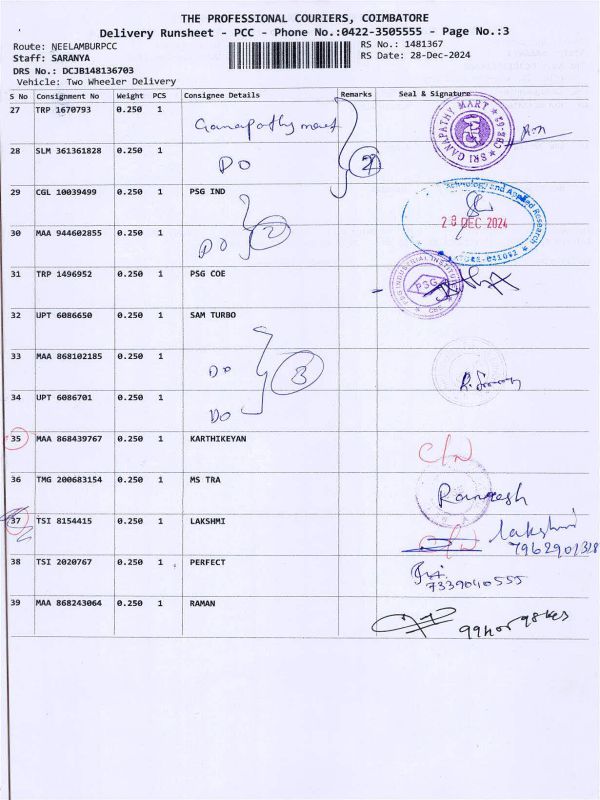 THE PROFESSIONAL COURIERS, COIMBATORE
Delivery Runsheet - PCC - Phone No.:0422-3505555 - Page No.:3
Route: NEELAMBURPCC RS No.: 1481367
Staff: SARANYA RS Date: 28-Dec-2024
DRS No.: DCJB148136703
Vehicle: Two Wheeler Delivery
S No Consignment No Weight PCS Consignee Details Remarks Seal & Signature
27 TRP 1670793 0.250 1 Ganapathy mart SRI GANAPATHY MART
28 SLM 361361828 0.250 1 DO 2
29 CGL 10039499 0.250 1 PSG IND Technology and Applied Research
28 DEC 2024
30 MAA 944602855 0.250 1 DO 2
31 TRP 1496952 0.250 1 PSG COE PSG
32 UPT 6086650 0.250 1 SAM TURBO
33 MAA 868102185 0.250 1 DO 3
34 UPT 6086701 0.250 1 DO
35 MAA 868439767 0.250 1 KARTHIKEYAN
36 TMG 200683154 0.250 1 MS TRA
37 TSI 8154415 0.250 1 LAKSHMI lakshmi
7962901318
38 TSI 2020767 0.250 1 PERFECT
7339040555
39 MAA 868243064 0.250 1 RAMAN